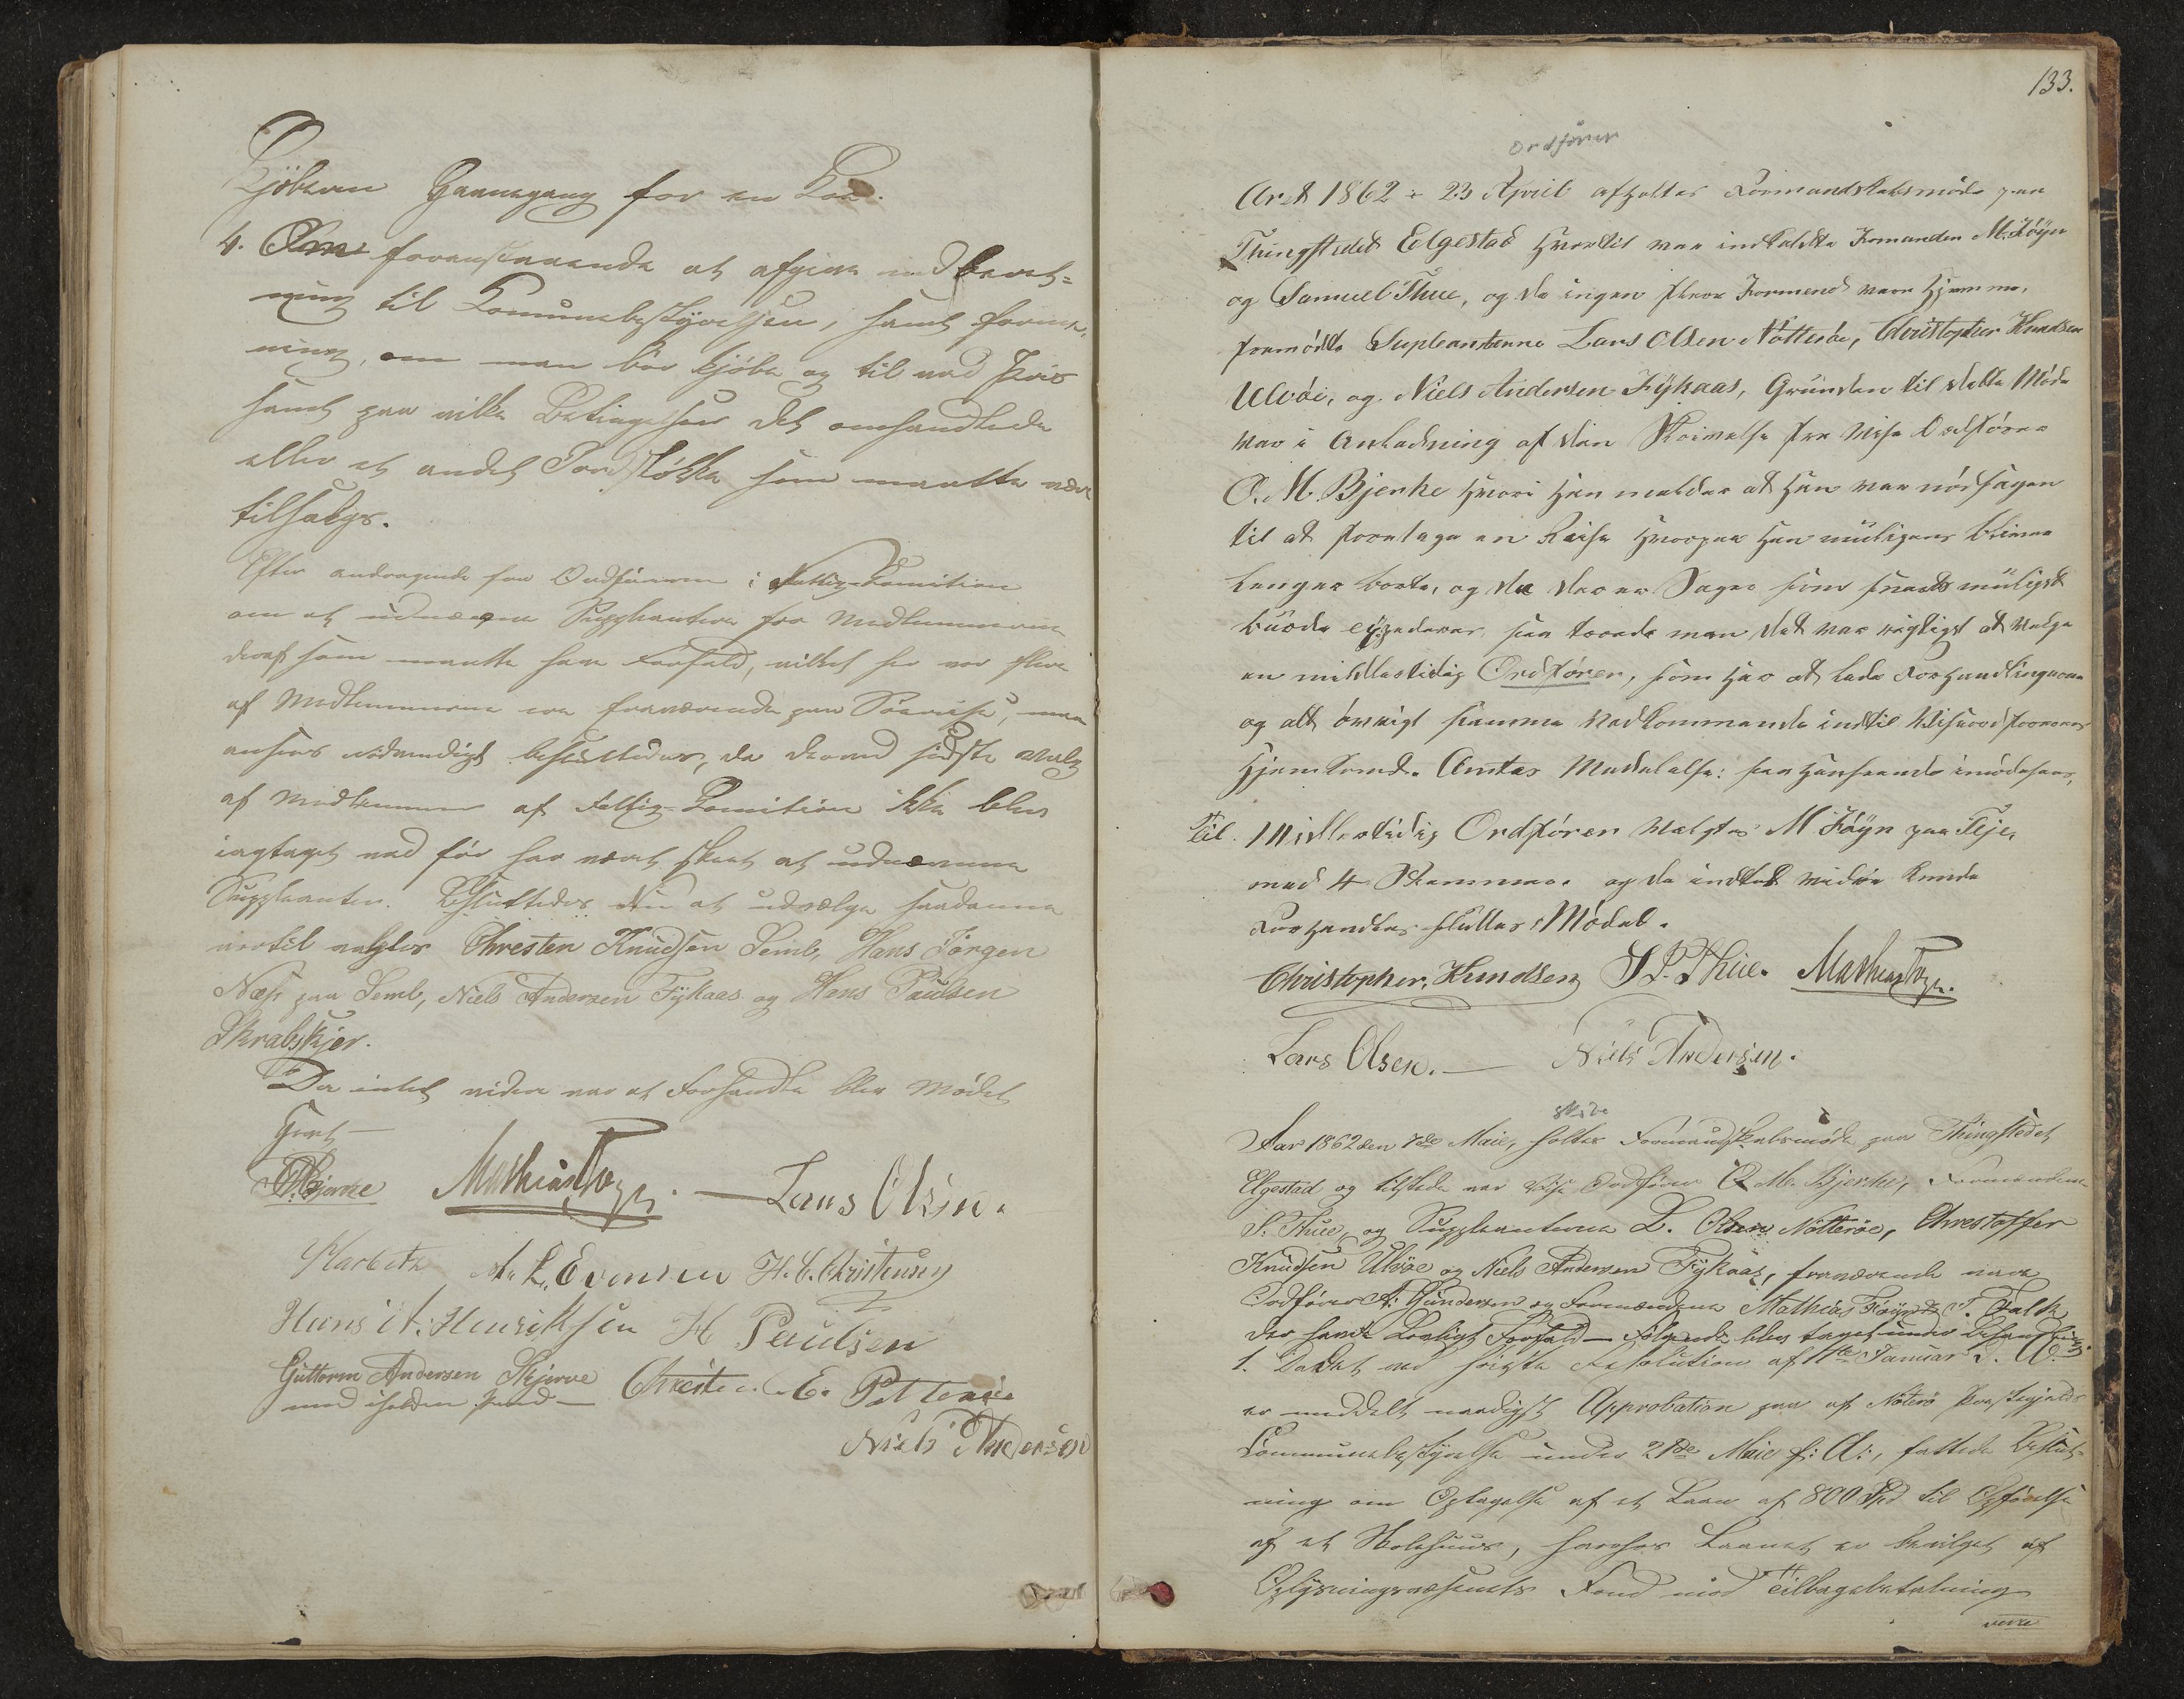 Kjöberen Gannegang for en Koe.
4. Om forenstaaende at afgive indberet-
ning til Komunebestyrelsen, samt formee-
ning, om man bör kjöbe og til vad Priis
samt paa vilke Betingelser det omhandlede
eller et andet Jordstökke som maatte være
tilsalgs.
Efter andragende fra Ordföreren i Fattig-Comition
om at udnævne Suppleanter for Medlemmerne
deraf som maatte have Forfald, vilket her vor flere
af Medlemmerne ere fraværende paa Söereise, maa
ansees nödvendigt besluttedes, da derved sidste Valg
af Medlemmer af Fattig-Comition ikke blev
iagtaget vad för har været skeet at udnævnne
Suppleanter. Besluttedes nu at udvælge saadanne
vortil valgtes Chresten Knudsen Semb, Hans Jörgen
Næss paa Semb, Niels Andersen Fykaas og Hans Paulsen
Skrabskjer.
Da intet videre var at Forhandle blev Mödet
hævet
OMBjerke Mathias Föyn. — Lars Olsen.
Marbeth A. L. Evensen H. C. Christensen
Hans A. Henriksen H Paulsen
Guttorm Andersen Skjerve Chresten E. Pettersen
med iholden Pend —
Niels Andersen
133.
Ordförer
Aret 1862 d 23 April afholtes Formandskabsmöde paa
Thingstedet Elgestad Hvortil var indkaldte Formanden M. Föyn
og Samuel Thue, og da ingen flere Formend vare Hjemme,
fremödte Supleanterne Lars Olsen Nötteröe, Christopher Knudsen
Ulvöe, og Niels Andersen Fÿkaas, Grunden til dette Möde
var i Anledning af den Skrivelse fra Vise Ordförer
O. M. Bjerke Hvori Han melder at Han var nödsagen
til at foretage en Reise Hvorpaa Han muligens bliver
lenger borte, og da der er Sager som snarest muligst
burde expederes, saa troede man det var rigtigst at velge
en midlertidig Ordförer, som Har at lede Forhandlingerne
og alt övrigt samme Vedkommende indtil Viseordföreren
Hjemkomst. Amtes Meddelelse: paa Hanseende imödesees,
Til. Midlertidig Ordförer Valgtes M Föyn paa Teje,
med 4 Stemmer. og da indtet videre kunde
Forhandles sluttes Mödet.
Christopher, Knudsen S. P. Thue. Mathias Föyn.
Lars Olsen. — Niels Andersen.
8de
Aar 1862 den 8de Maie, holtes Formandskabsmöde paa Thingstedet
Elgestad og tilstede var Vise Ordförer O. M. Bjerke, Formændene
S. Thue, og Suppleanterne L. Olsen Nötteröe, Chrestoffer
Knudsen Ulvöe og Niels Andersen Fykaas, fraværende vare
Ordförer A: Gundersen og Formændene Mathias Föyn & T. Falk
der havde Lovligt Forfald — Fölgende blev taget under Behandling
1. Da det ved höieste Resolution af 11te Januar d. A.
er meddelt naadigst Approbation paa af Nöterö Præstegjelds
Communebestyrelse under 21de Maie f: A:, fattede Beslut-
ning om Optagelse af et Laan af 800 Spd til Opförelse
af et Skolehuus, hvorhos Laanet er bevilget af
Oplysningsvæsenets Fond mod Tilbagebetaling